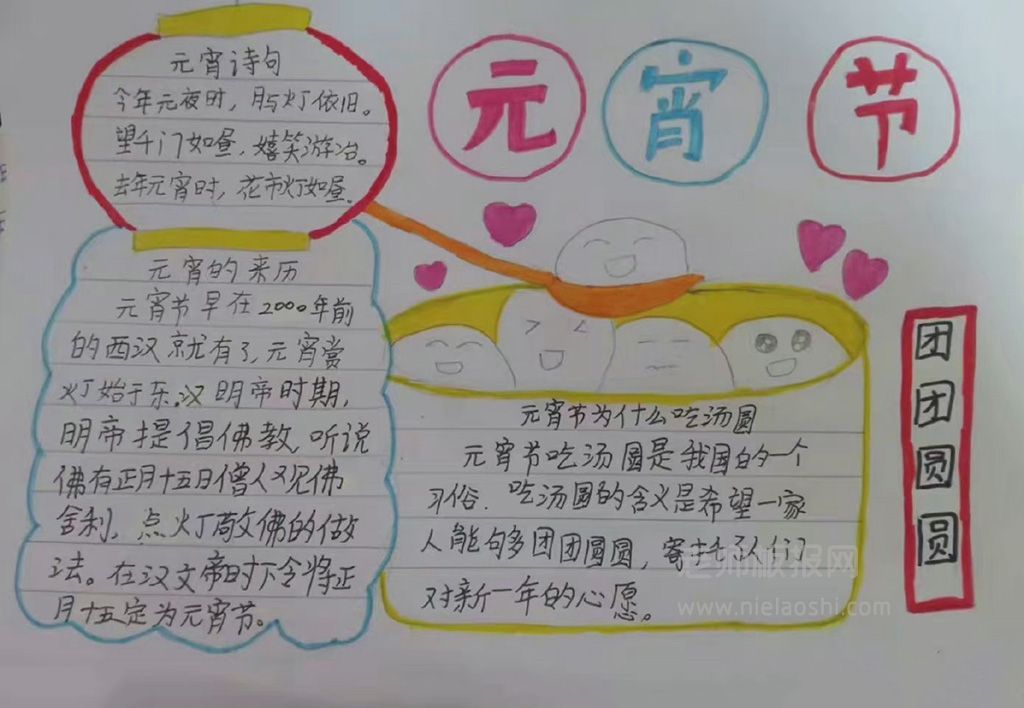 元宵节
元宵诗句
今年元夜时，月与灯依旧。
望千门如昼，嬉笑游冶。
去年元宵时，花市灯如昼。
元宵的来历
元宵节早在2000年前
的西汉就有了，元宵赏
灯始于东汉明帝时期，
明帝提倡佛教，听说
佛有正月十五日僧人观佛
舍利，点灯敬佛的做
法。在汉文帝时下令将正
月十五定为元宵节。
元宵节为什么吃汤圆
元宵节吃汤圆是我国的一个
习俗．吃汤圆的含义是希望一家
人能够多团团圆圆，寄托人们
对新一年的心愿。
团
团
圆
圆
老师板报网
www.nielaoshi.com